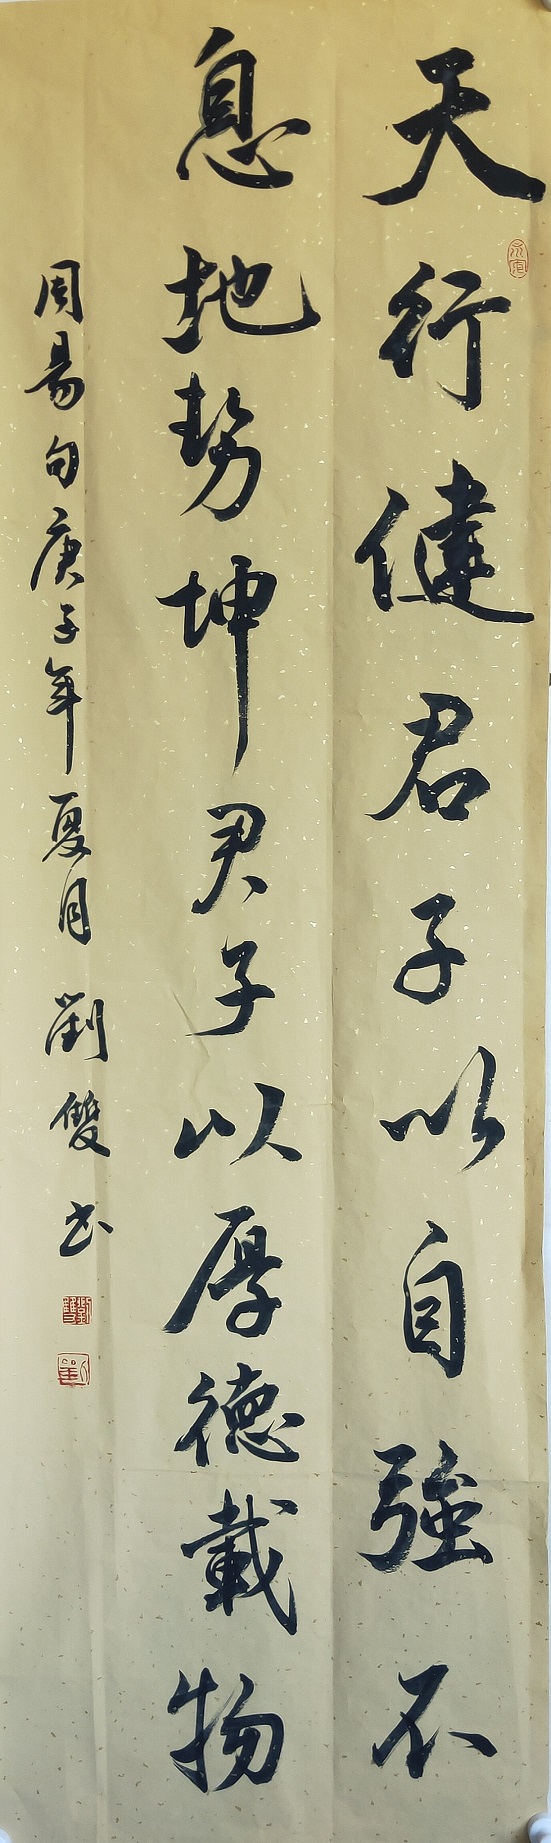 天行健君子以自強不
息地勢坤君子以厚德載物
周易句庚子年夏月劉雙书